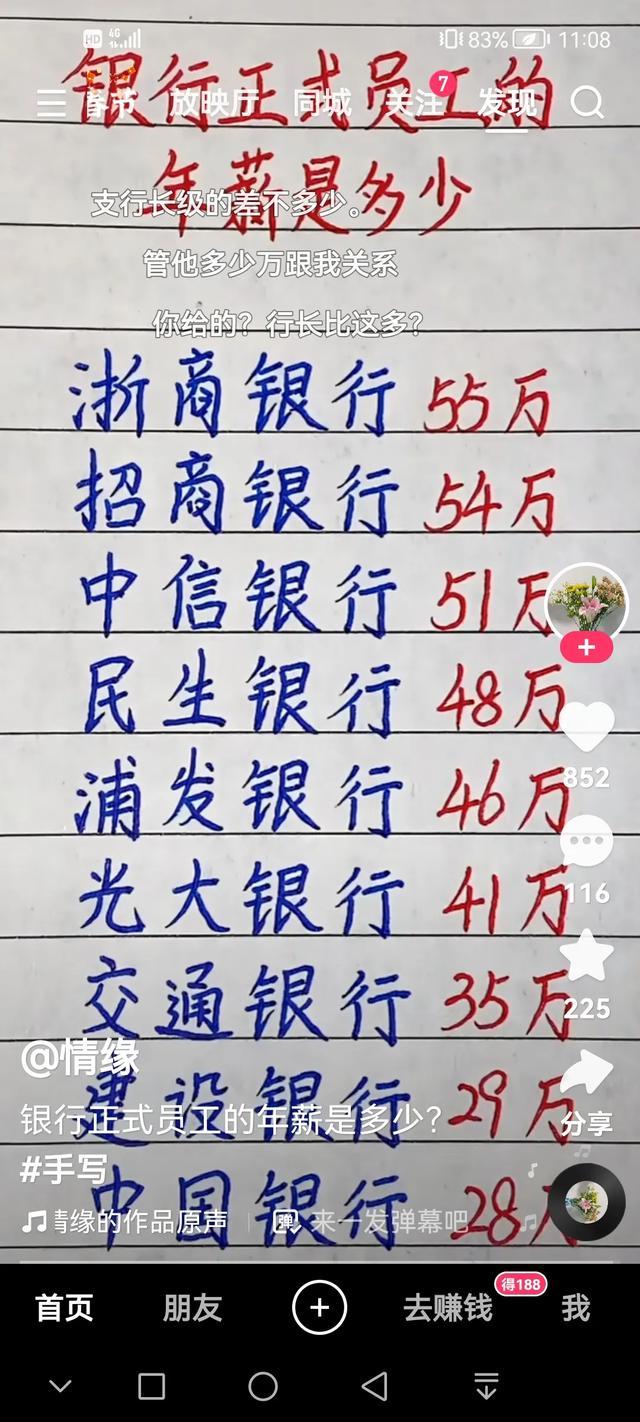 HD 4G 83% 11:08
银行正式员工的
春节 放映厅 同城 关注 7 发现
年薪是多少
支行长级的差不多少。
管他多少万跟我关系
你给的？行长比这多？
浙商银行 55万
招商银行 54万
中信银行 51万
民生银行 48万
浦发银行 46万
852
光大银行 41万
116
交通银行 35万
225
@情缘
建设银行 29万
银行正式员工的年薪是多少？
分享
#手写
中国银行 28万
情缘的作品原声 弹 来一发弹幕吧
首页 朋友 去赚钱 得188 我